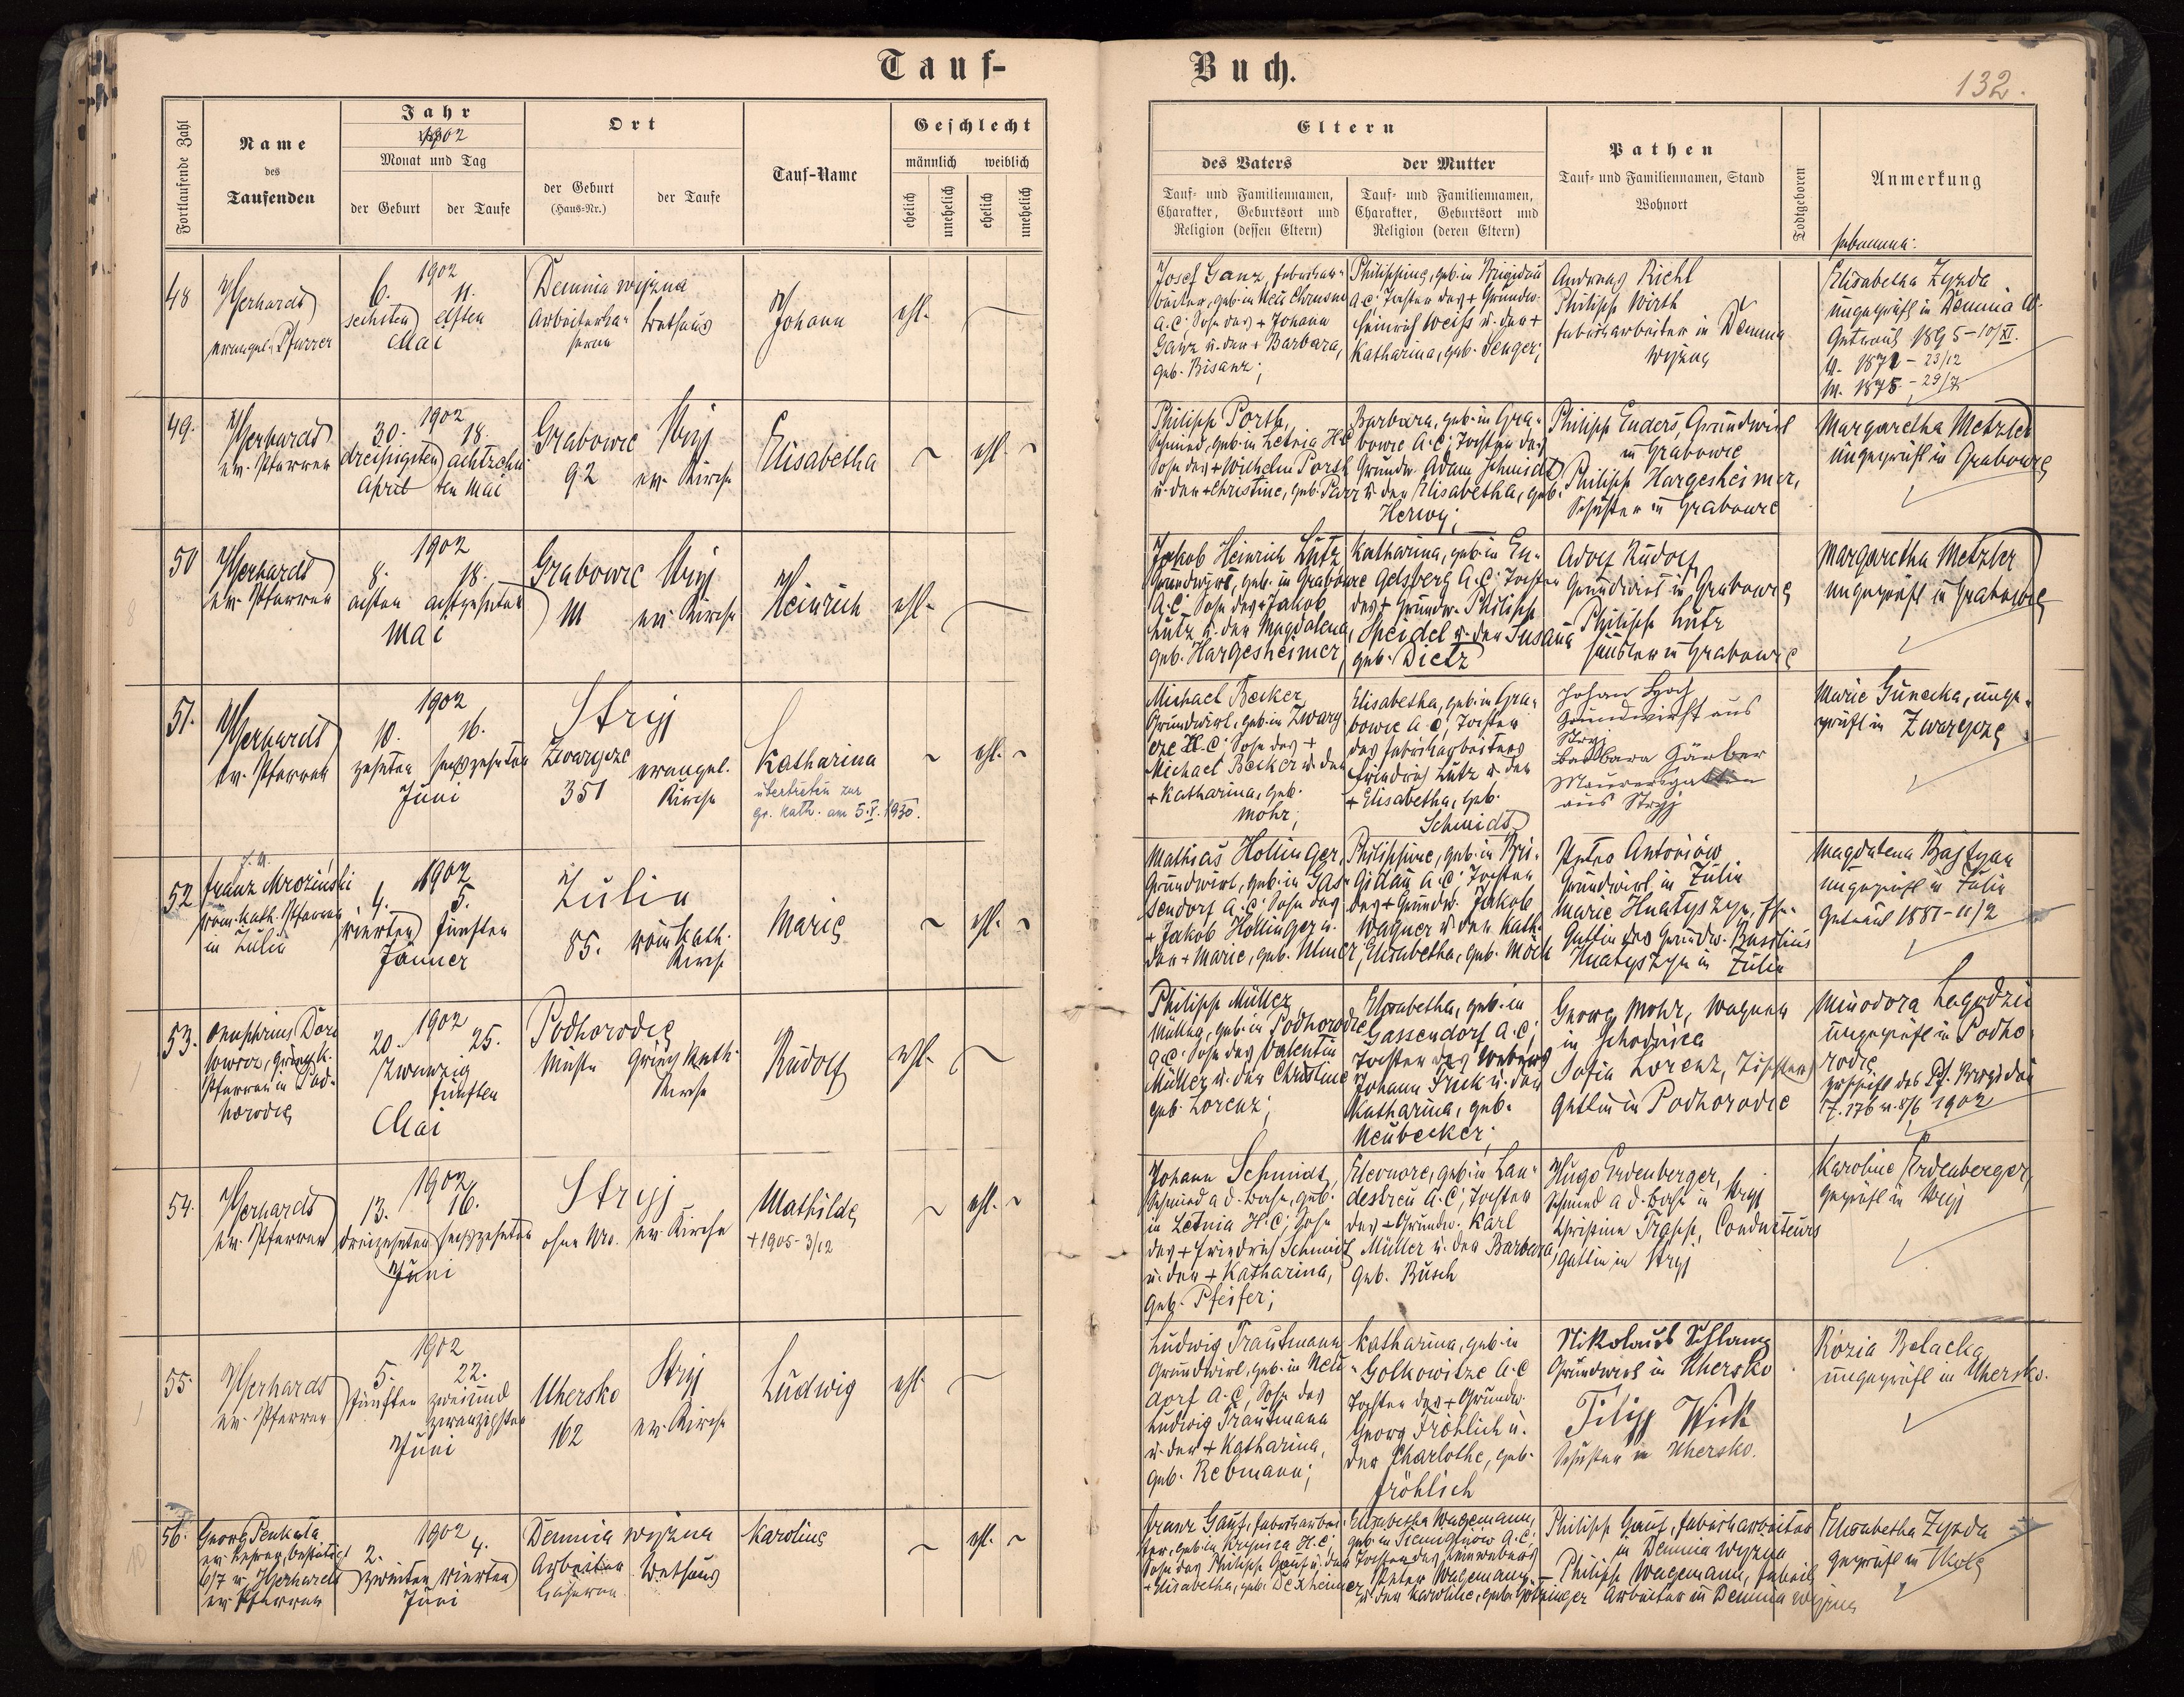 Tauf-
Buch.
132.
Fortlaufende Zahl
Name
des
Taufenden
Jahr
1902
Monat und Tag
der Geburt
der Taufe
Ort
der Geburt
(Haus-Nr.)
der Taufe
Tauf-Name
Geschlecht
männlich weiblich
ehelich
unehelich
ehelich
unehelich
Eltern
des Vaters
der Mutter
Tauf- und Familiennamen,
Charakter, Geburtsort und
Religion (dessen Eltern)
Tauf- und Familiennamen,
Charakter, Geburtsort und
Religion (deren Eltern)
Pathen
Tauf- und Familiennamen, Stand
Wohnort
Todtgeboren
Anmerkung
Hebamme:
48
Gerhardt
evangel. Pfarrer
1902
6. 11.
sechsten elften
Mai
Demnia wyżna
Arbeiterka-
serne
Bethaus
Johann
ehl.
Josef Ganz, Fabriksar-
beiter, geb. in Neu Chrusno
A.C; Sohn des + Johann
Ganz u. der + Barbara,
geb. Bisanz;
Philippine, geb. in Brigidau
A.C; Tochter des + Grundw.
Heinrich Weiß u. der +
Katharina, geb. Senger;
Andreas Richt
Philipp Wirth
Fabriksarbeiter in Demnia
wyżna
Elisabetha Zyzda
ungeprüft in Demnia w.
Getraut 1895-10/XI.
V. 1872 - 23/12
M. 1875 - 29/7
49.
Gerhardt
ev. Pfarrer
1902
30. 18.
dreißigsten achtzehn
April ten Mai
Grabowce
92
Stryj
ev. Kirche
Elisabetha
ehl.
Philipp Porth,
Schmied, geb. in Letnia H.C
Sohn des + Wilhelm Porth
u. der + Christine, geb.
Barbara, geb. in Gra-
bowce A.C; Tochter des
Grundw. Adam Schmidt
u. der Elisabetha, geb.
Herwy;
Philipp Enders, Grundwirt
in Grabowce
Philipp Hargesheimer,
Schuster in Grabowce
Margaretha Metzler
ungeprüft in Grabowce
50
Gerhardt
ev. Pfarrer
1902
8. 18.
achten achtzehnten
Mai
Grabowce
111
Stryj
ev. Kirche
Heinrich
ehl.
Jakob Heinrich Lutz
Grundwirt, geb. in Grabowce
A.C; Sohn des + Jakob
Lutz u. der Magdalena,
geb. Hargesheimer,
Katharina, geb. in En-
gelsberg A.C; Tochter
des + Grundw. Philipp
Speidel u. der Susana
geb. Dietz
Adolf Rudolf,
Grundwirt in Grabowce
Philipp Lutz
Häusler in Grabowce
Margaretha Metzler
ungeprüft in Grabowce
51.
Gerhardt
ev. Pfarrer
1902
10. 16.
zehnten sechzehnten
Juni
Stryj
Zwargcze
351
evangel.
Kirche
Katharina
übertreten zur
gr. kath. am 5.V.1930.
ehl.
Michael Becker
Grundwirt, geb. in Zwarg
cze H.C; Sohn des +
Michael Becker u. der
+ Katharina, geb.
Mohr;
Elisabetha, geb. in Gra-
bowce A.C; Tochter
des Fabriksarbeiters
Friedrich Lutz u. der
+ Elisabetha, geb.
Schmidt
Johan
Grundwirth aus
Stryj
Barbara Gärber
Maurersgattin
aus Stryj
Marie Gunecka, unge-
prüft in Zwargcze
52.
Franz Mroziński
röm. kath. Pfarrer
in Zulin
1902
4. 5.
vierten fünften
Jänner
Zulin
85.
röm. kath.
Kirche
Marie
ehl.
Mathias Hollinger,
Grundwirt, geb. in Gas-
sendorf A.C; Sohn des
+ Jakob Hollinger u.
der + Marie, geb. Ulmer;
Philippine, geb. in Bri-
gidau A.C; Tochter
des + Grundw. Jakob
Wagner u. der Kath.
Elisabetha, geb. Möck
Petro Antoniów
Grundwirt in Zulin
Marie Hnatyszyn, Ehe-
Gattin des Grundw. Basilius
Hnatyszyn in Zulin
Magdalena Bajtyan
ungeprüft in Zulin
Getraut 1881-11/2
53.
Onuphrius
griech. k.
Pfarrer in Pod-
horodce
1902
20. 25.
zwanzig
fünften
Mai
Podhorodce
Mühle
Griech. kath.
Kirche
Rudolf
ehl.
Philipp Müller
Müller, geb. in Podhorodce
A.C; Sohn des Valentin
Müller u. der Christine
geb. Lorenz;
Elisabetha, geb. in
Gassendorf A.C;
Tochter des Webers
Johann Frick u. der
Katharina, geb.
Neubecker;
Georg Mohr, Wagner
in Schodnica
Sofia Lorenz, Tischlers
Gattin in Podhorodce
Minodora Łagodzin
ungeprüft in Podho-
rodce,
Zuschrift des Pf. Brigidau
Z. 176 v. 8/6 1902
54.
Gerhardt
ev. Pfarrer
1902
13. 16.
dreizehnten sechzehnten
Juni
Stryj
ohne Nro.
ev. Kirche
Mathilde
+1905-3/12
ehl.
Johann Schmidt,
Schmied a. d. Bahn, geb.
in Letnia H.C; Sohn
des + Friedrich Schmidt
u. der + Katharina,
geb. Pfeifer;
Eleonore, geb. in Lan-
destreu A.C; Tochter
des + Grundw. Karl
Müller u. der Barbara,
geb. Busch
Hugo Erdenberger,
Schmied a. d. Bahn in Stryj
Christine Trapp, Conducteurs
gattin in Stryj
Karoline Erdenberger,
geprüft in Stryj
55.
Gerhardt
ev. Pfarrer
1902
5. 22.
fünften zweiund
zwanzigsten
Juni
Uhersko
162
Stryj
ev. Kirche
Ludwig
ehl.
Ludwig Trautmann
Grundwirt, geb. in Neu-
dorf A.C, Sohn des
Ludwig Trautmann
u. der + Katharina,
geb. Rebmann;
Katharina, geb. in
Golkowitze A.C
Tochter des + Grundw.
Georg Fröhlich u.
der Charlothe, geb.
Fröhlich
Nikolaus Schlamp
Grundwirt in Uhersko
Filipp Wick
Schuster in Uhersko.
Rózia Belacka
ungeprüft in Uhersko.
56.
Georg Penkala
ev. Lehrer, bestätigt
6/7 v. Gerhardt
ev. Pfarrer
1902
2. 4.
zweiten vierten
Juni
Demnia wyżna
Arbeiter
kaserne
Bethaus
Karoline
ehl.
Franz Gauf, Fabriksarbei-
ter, geb. in H.C,
Sohn des Philipp Gauf u. der
+ Elisabetha, geb. Dexheimer
Elisabetha Wagemann,
geb. in A.C.
Tochter des Leinwebers
Peter Wagemann
u. der Karoline, geb.
Philipp Gauf, Fabriksarbeiter
in Demnia wyżna
Philipp Wagemann, Fabriks
Arbeiter in Demnia wyżna
Elisabetha Zyzda
geprüft in Skole